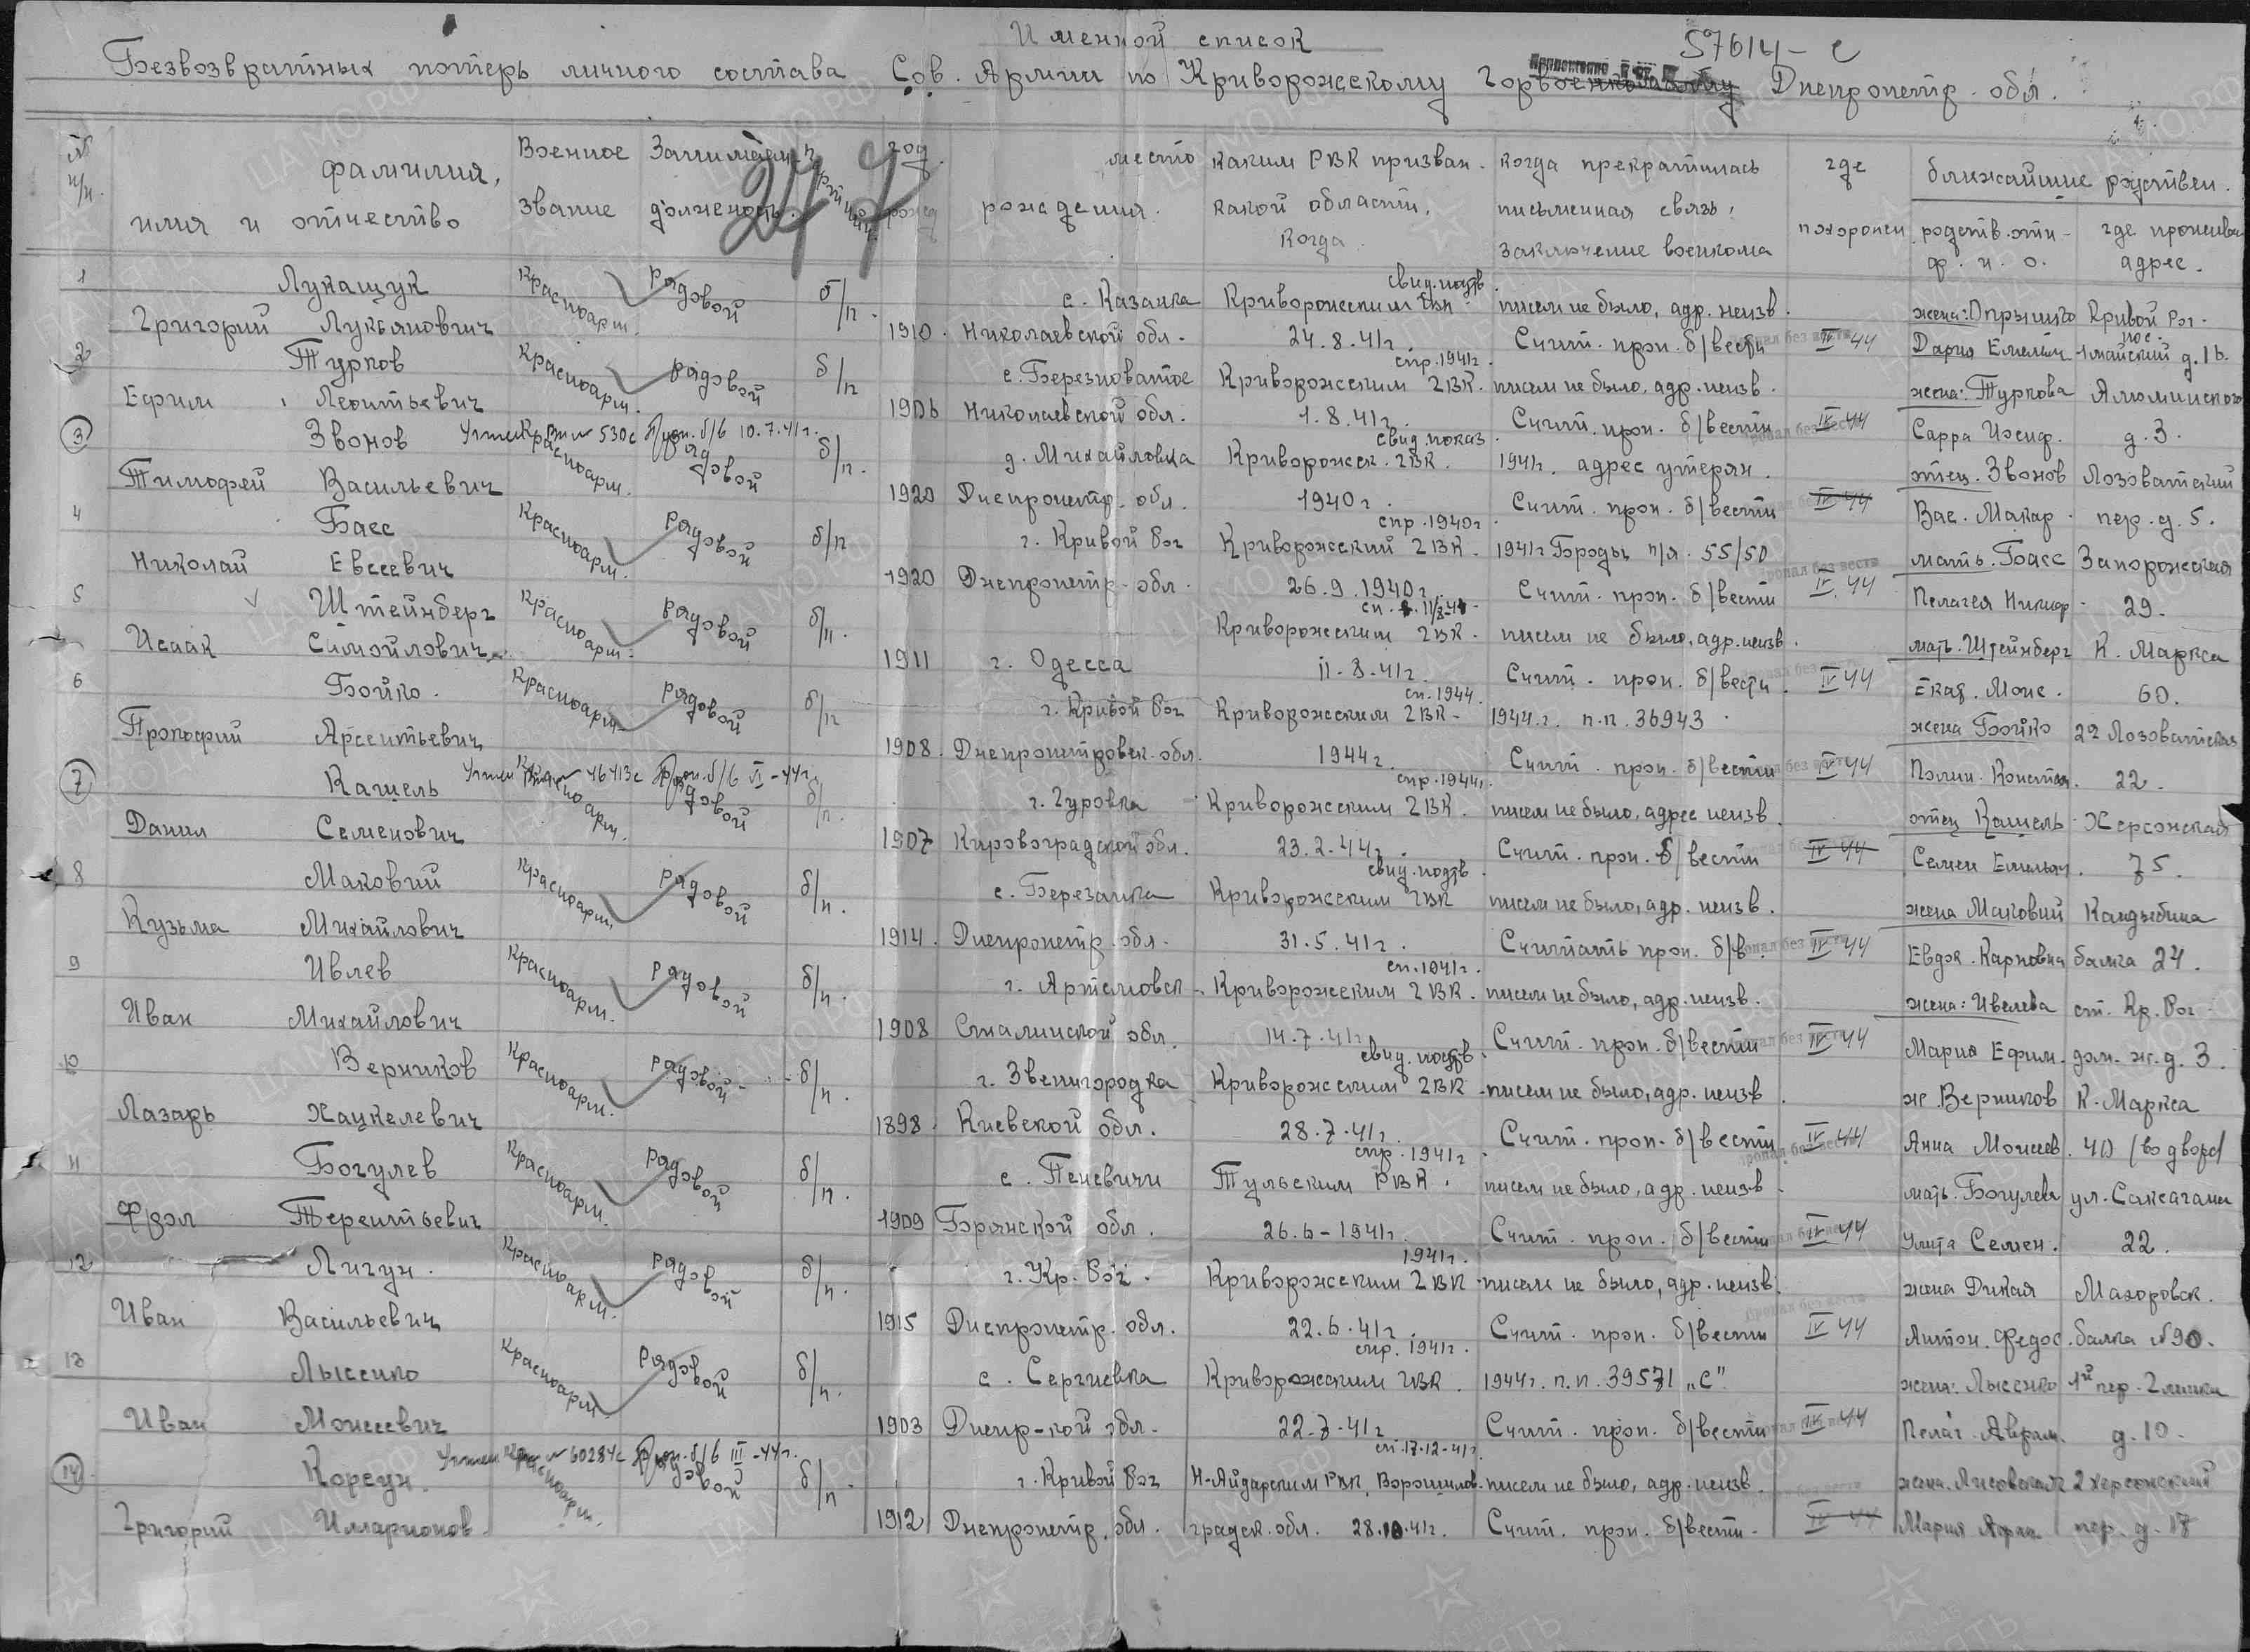 Именной список
57614-с
Безвозвратных потерь личного состава Сов. Армии по Криворожскому Горвоенкомату Днепропетр. обл.
№ п/п. фамилия, имя и отчество
Военное звание
Занимаем. должность.
партийн.
год рожд
место рождения.
каким РВК призван. какой области, когда.
когда прекратилась письменная связь, заключение военкома
где похоронен
ближайшие родствен.
родств. отн- ф. и. о.
где прожива адрес.
247
1 Лукащук Красноарм. рядовой б/п. с. Казанка Криворожским ГВК свид. подтв. писем не было, адр. неизв. жена: Опрышко Кривой Рог.
Григорий Лукьянович 1910. Николаевской обл. 24.8.41г. Счит. проп. б/вести IV 44 Дария Емельян. пос. 1 майский д. 16.
2 Турков Красноарм. рядовой б/п с. Березноватое Криворожским ГВК. спр. 1941г. писем не было, адр. неизв. жена: Туркова Алюминского
Ефим Леонтьевич 1906 Николаевской обл. 1.8.41г. Счит. проп. б/вести IV 44 Сарра Иосиф. д. 3.
3 Звонов Учтен Вх № 530с Проп. б/в 10.7.41г. Красноарм. рядовой б/п. д. Михайловка Криворожск. ГВК. свид. показ. 1941г. адрес утерян. отец. Звонов Лозоватский
Тимофей Васильевич 1920 Днепропетр. обл. 1940г. Счит. проп. б/вести IV 44 Вас. Макар. пер. д. 5.
4 Басс Красноарм. рядовой б/п г. Кривой Рог Криворожский ГВК. спр. 1940г. 1941г Броды п/я. 55/50 мать. Басс Запорожская
Николай Евсеевич 1920 Днепропетр. обл. 26.9.1940г. Счит. проп. б/вести IV. 44 Пелагея Никиф. 29.
5 Штейнберг Красноарм. рядовой б/п. Криворожским ГВК. писем не было, адр. неизв. мать. Штейнберг К. Маркса
Исаак Самойлович 1911 г. Одесса 11.8.41г. Счит. проп. б/вести. IV 44 Екат. Моис. 60.
6 Бойко. Красноарм. рядовой б/п г. Кривой Рог Криворожским ГВК. сп. 1944. 1944.г. п.п. 36943. жена Бойко 2я Лозоватская
Прокофий Арсентьевич 1908. Днепропетровск. обл. 1944г. Счит. проп. б/вести IV 44 Полин. Констан. 22.
7 Кашель Учтен Вх № 46413с Проп. б/в VI-44г. Красноарм. рядовой б/п. г. Гуровка Криворожским ГВК. спр. 1944г. писем не было, адрес неизв. отец Кашель Херсонская
Данил Семенович 1907 Кировоградской обл. 23.2.44г. Счит. проп. б/вести IV 44 Семен Емельян. 75.
8 Маковий Красноарм. рядовой б/п. с. Березанка Криворожским ГВК свид. подтв. писем не было, адр. неизв. жена Маковий Кандыбина
Кузьма Михайлович 1914. Днепропетр. обл. 31.5.41г. Считать проп. б/в. IV 44 Евдок. Карповна балка 24.
9 Ивлев Красноарм. рядовой б/п. г. Артемовск Криворожским ГВК. сп. 1941г. писем не было, адр. неизв. жена: Ивелева ст. Кр. Рог
Иван Михайлович 1908 Сталинской обл. 14.7.41г. Счит. проп. б/вести IV 44 Мария Ефим. дом. ж.д. 3.
10 Верников Красноарм. рядовой б/п. г. Звенигородка Криворожским ГВК свид. подтв. писем не было, адр. неизв. ж. Верников К. Маркса
Лазарь Хацкелевич 1898. Киевской обл. 28.7.41г. Счит. проп. б/вести IV 44 Анна Моисеев. 40 /во дворе/
11 Богулев Красноарм. рядовой б/п. с. Пеневичи Тульским РВК. спр. 1941г. писем не было, адр. неизв. мать. Богулева ул. Саксагани
Фрол Терентьевич 1909 Брянской обл. 26.6-1941г. Счит. проп. б/вести IV 44 Улита Семен. 22.
12 Лигун. Красноарм. рядовой б/п. г. Кр. Рог. Криворожским ГВК 1941г. писем не было, адр. неизв. жена Дикая Махоровск.
Иван Васильевич 1915 Днепропетр. обл. 22.6.41г. Счит. проп. б/вести IV 44 Антон. Федос. балка №90.
13 Лысенко Красноарм. рядовой б/п. с. Сергиевка Криворожским ГВК. спр. 1941г. 1944г. п.п. 39571 „С" жена: Лысенко 1й пер. Глинки
Иван Моисеевич 1903 Днепр-кой обл. 22.7.41г Счит. проп. б/вести IV 44 Пелаг. Аврам. д. 10.
14 Корсун Учтен Вх № 60284с Проп. б/в III-44г. Красноарм. рядовой б/п г. Кривой Рог Н-Айдарским РВК, Ворошилов- сп. 17-12-41г. писем не было, адр. неизв. жена. Лисовская 2 херсонский
Григорий Илларионов. 1912 Днепропетр. обл. градск. обл. 28.10.41г. Счит. проп. б/вести. IV 44 Мария Афан. пер. д. 18